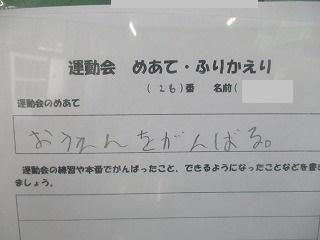 運動会 めあて・ふりかえり
(26)番 名前(
運動会のめあて
おうえんをがんばる。
運動会の練習や本番でがんばったこと、できるようになったことなどを書き
ましょう。